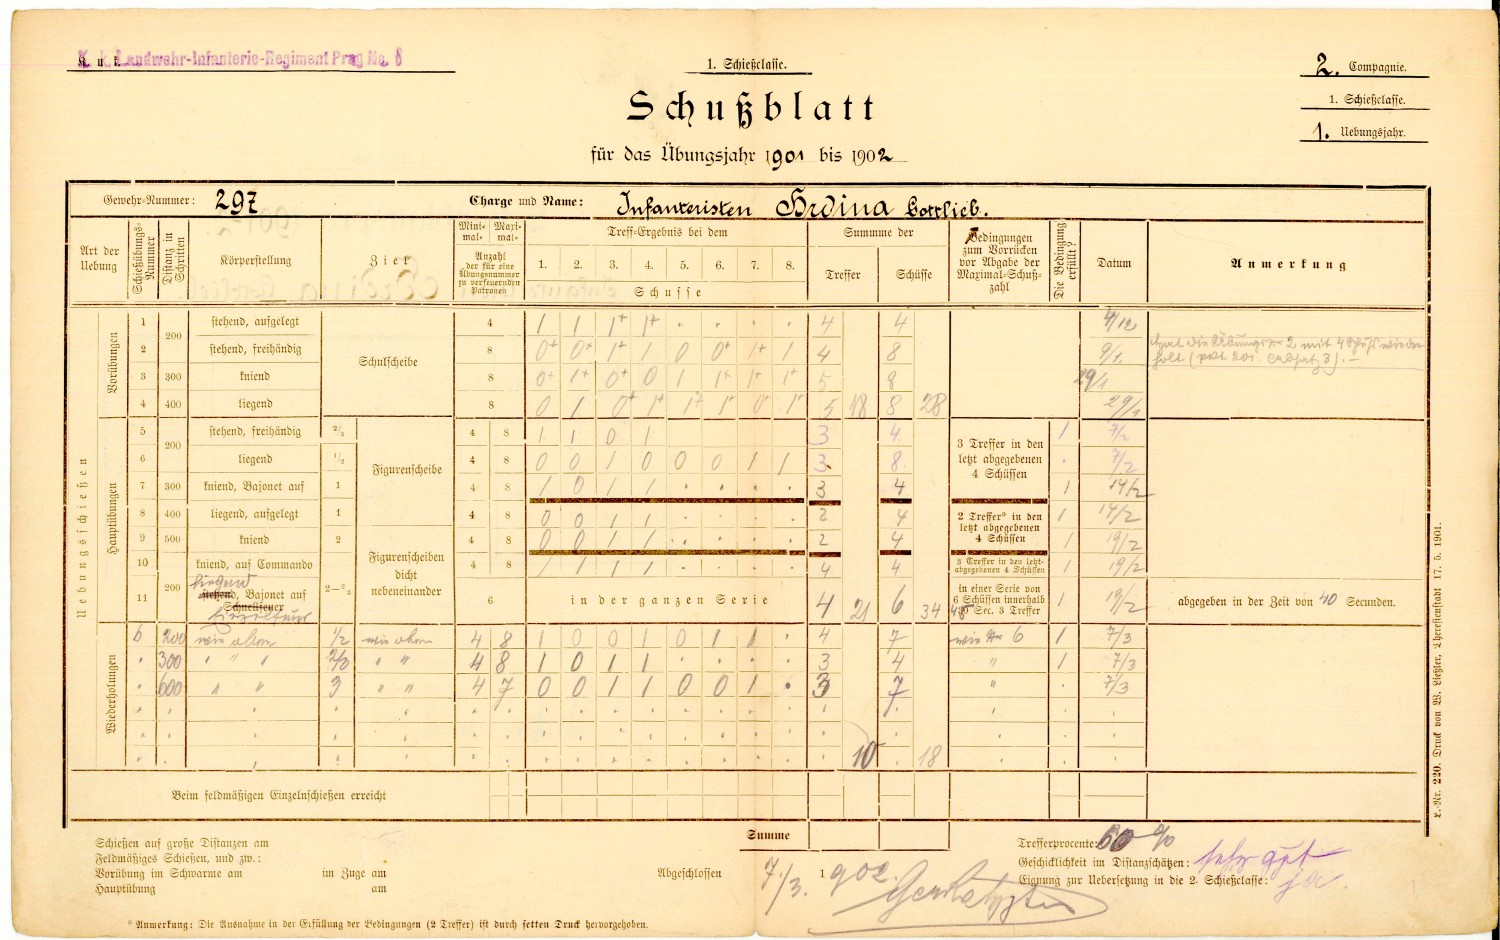 K. k. Landwehr-Infanterie-Regiment Prag No. 8
1. Schießclasse.
2. Compagnie.
1. Schießclasse.
1. Uebungsjahr.
Schußblatt
für das Übungsjahr 1901 bis 1902
Gewehr-Nummer: 297 Charge und Name: Infanteristen Hrdina Gottlieb.
Art der Uebung
Schießübungs-Nummer
Distanz in Schritten
Körperstellung
Ziel
Mini-mal- Maxi-mal-
Anzahl der für eine Übungsnummer zu verfeuernden Patronen
Treff-Ergebnis bei dem
1. 2. 3. 4. 5. 6. 7. 8.
Schusse
Summme der
Treffer Schüsse
Bedingungen zum Vorrücken vor Abgabe der Maximal-Schuß-zahl
Die Bedingung erfüllt?
Datum
Anmerkung
Uebungsschießen
Vorübungen
1 200 stehend, aufgelegt Schulscheibe 4 1 1 1+ 1+ . . . . 4 4 4/12
2 stehend, freihändig 8 0+ 0+ 1+ 1 0 0+ 1+ 1 4 8 9/1 hat die Übungs Nr 2 mit 4 Schuß wieder
holt (
3 300 kniend 8 0+ 1+ 0+ 0 1 1+ 1+ 1+ 5 8 29/1
4 400 liegend 8 0 1 0+ 1+ 1+ 1 0 1 5 18 8 28 29/1
Hauptübungen
5 200 stehend, freihändig 2/3 Figurenscheibe 4 8 1 1 0 1 3 4 3 Treffer in den letzt abgegebenen 4 Schüssen 1 7/2
6 liegend 1/2 4 8 0 0 1 0 0 0 1 1 3 8 . 7/2
7 300 kniend, Bajonet auf 1 4 8 1 0 1 1 . . . . 3 4 1 14/2
8 400 liegend, aufgelegt 1 4 8 0 0 1 1 . . . . 2 4 2 Treffer* in den letzt abgegebenen 4 Schüssen 1 14/2
9 500 kniend 2 Figurenscheiben dicht nebeneinander 4 8 0 0 1 1 . . . . 2 4 1 19/2
10 200 kniend, auf Commando 2— 4 8 1 1 1 1 . . . . 4 4 3 Treffer in den letzt-abgegebenen 4 Schüssen 1 19/2
liegend
11 stehend, Bajonet auf Schnellfeuer 6 in der ganzen Serie 4 21 6 34 in einer Serie von 6 Schüssen innerhalb 45 Sec. 3 Treffer 1 19/2 abgegeben in der Zeit von 40 Secunden.
Einzelfeuer
Wiederholungen
6 200 wie oben 1/2 wie oben 4 8 1 0 0 1 0 1 1 . 4 7 wie Nr 6 1 7/3
. 300 " " " 2/3 " " 4 8 1 0 1 1 . . . . 3 4 " 1 7/3
. 600 " " 3 " " 4 7 0 0 1 1 0 0 1 . 3 7 " . 7/3
10 18
Beim feldmäßigen Einzelnschießen erreicht
Summe
Schießen auf große Distanzen am
Feldmäßiges Schießen, und zw.:
Vorübung im Schwarme am im Zuge am
Hauptübung am
Abgeschlossen 7./3. 1902.
Trefferprocente: 60 %
Geschicklichkeit im Distanzschätzen: sehr gut
Eignung zur Uebersetzung in die 2. Schießclasse: ja.
* Anmerkung: Die Ausnahme in der Erfüllung der Bedingungen (2 Treffer) ist durch fetten Druck hervorgehoben.
L.-Nr. 220. Druck von W. Ließler, Theresienstadt 17. 5. 1901.